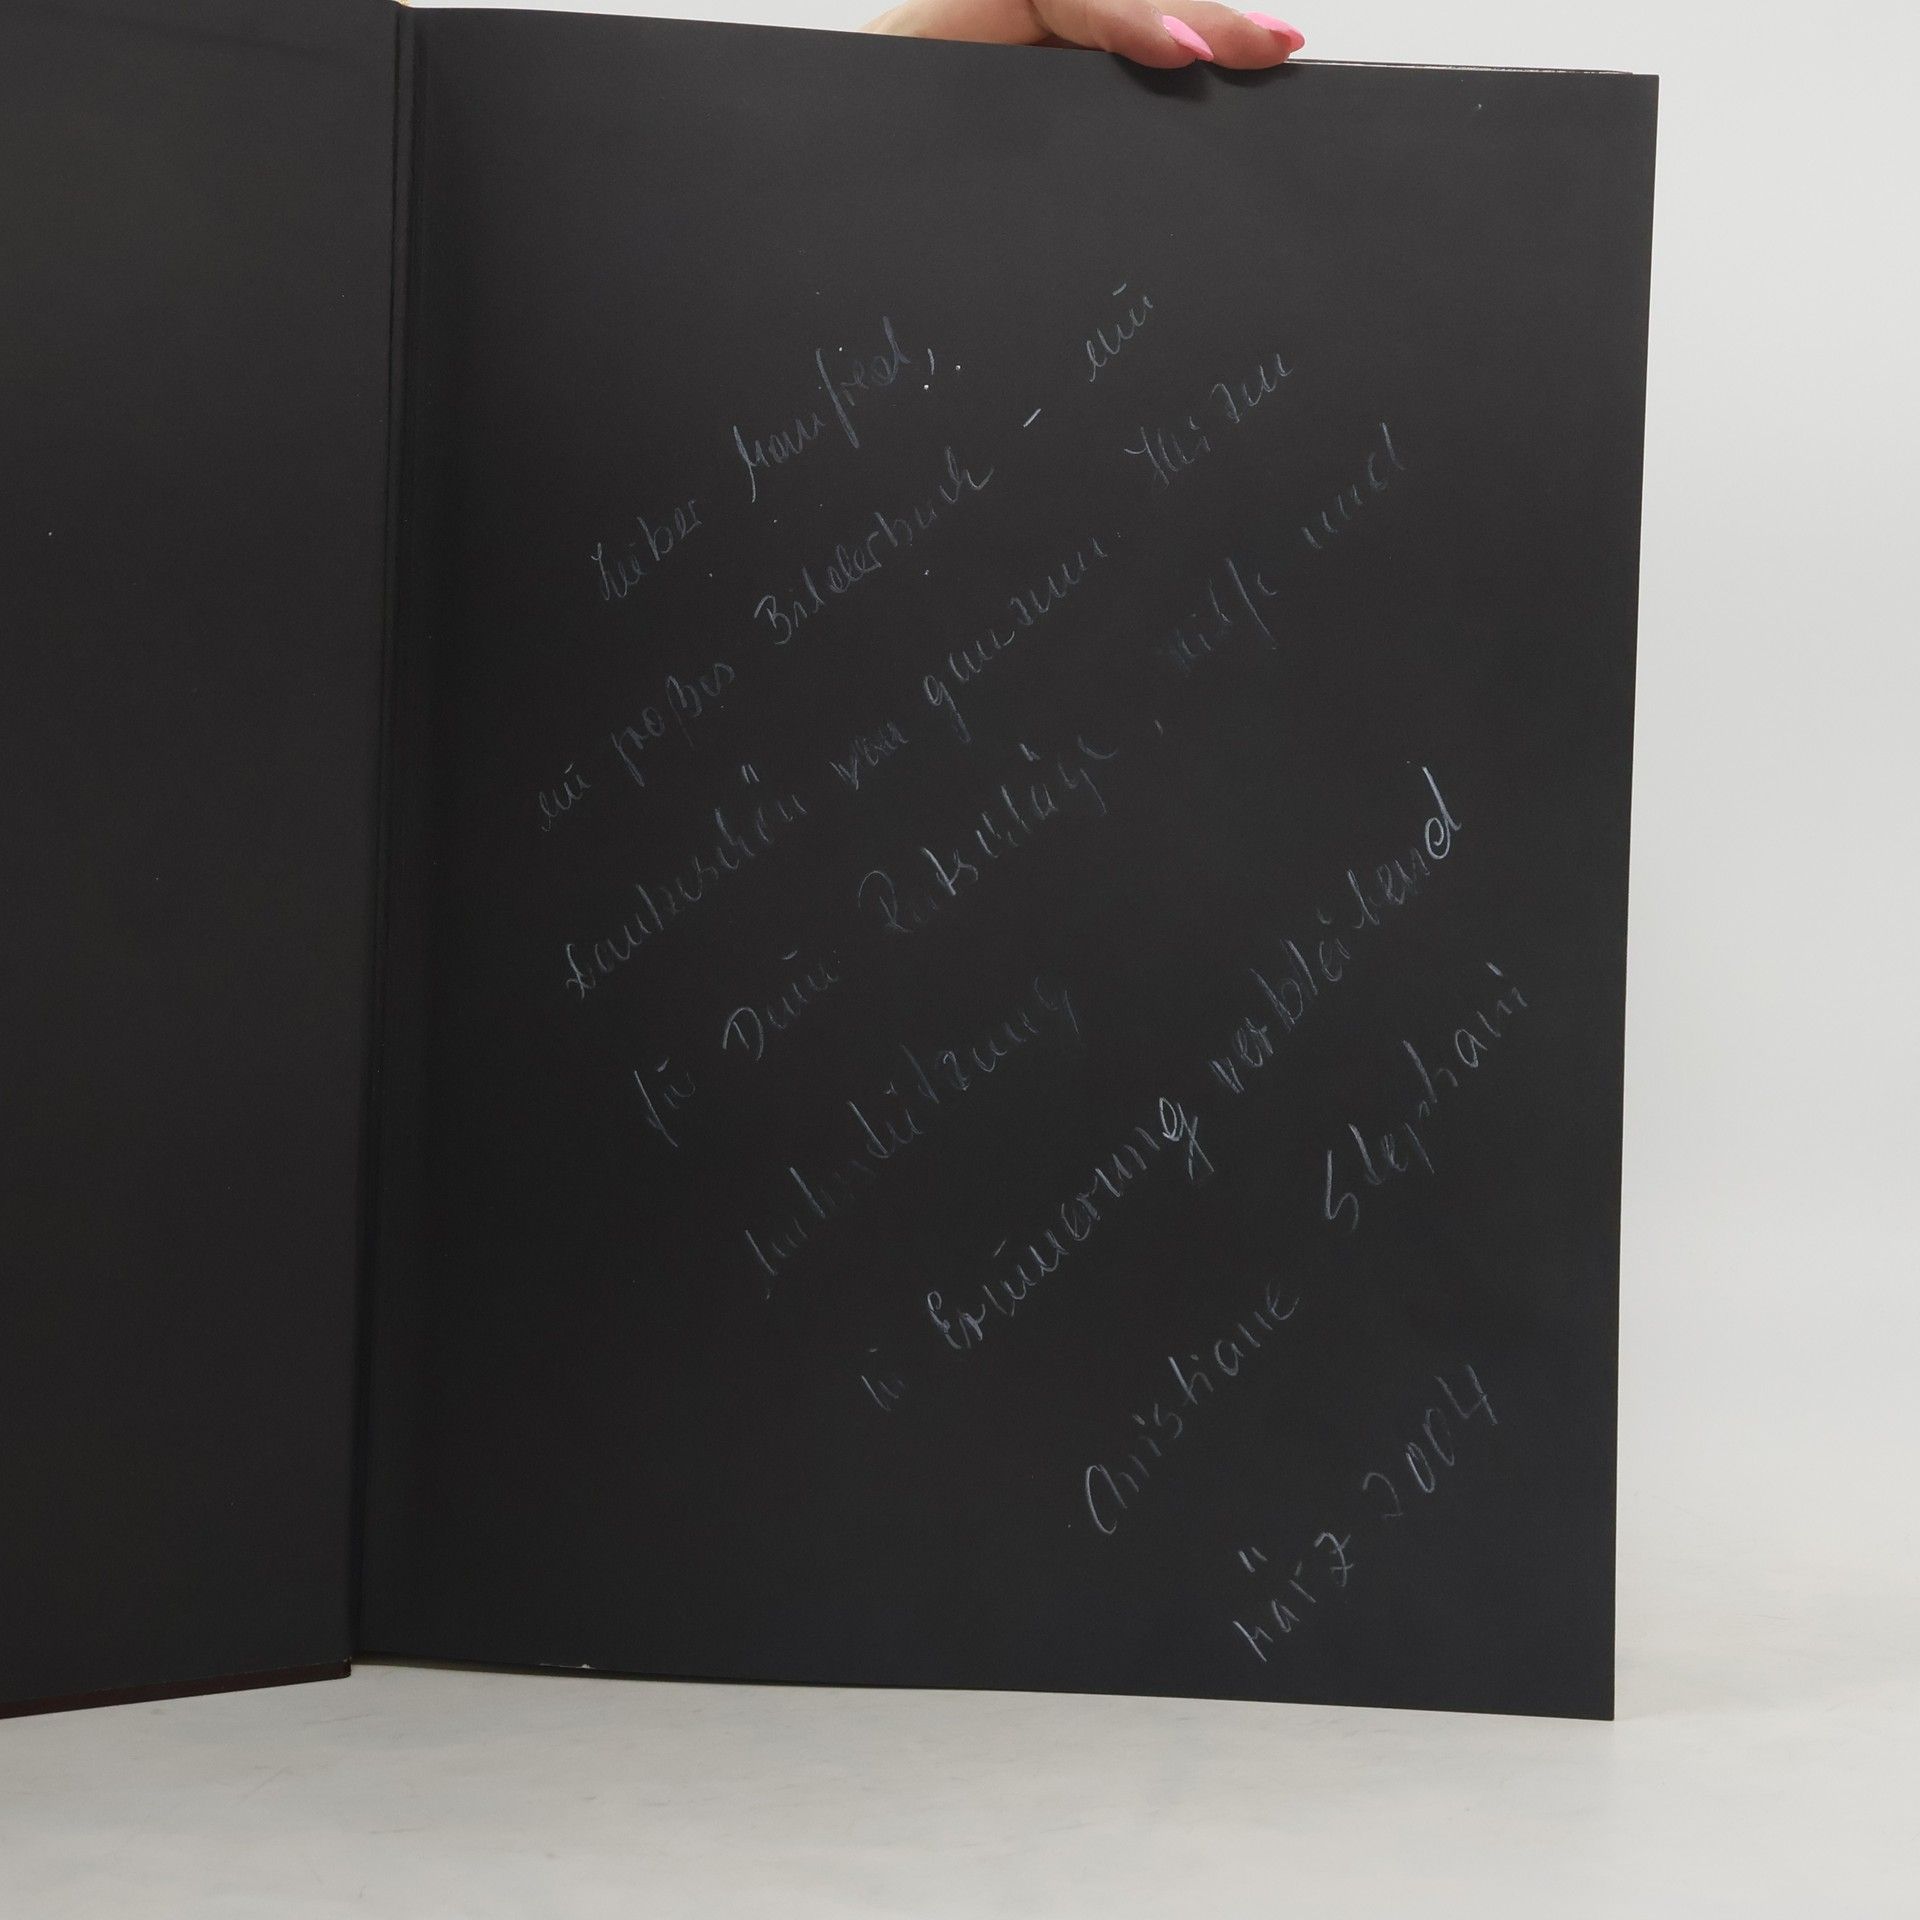 Lieber Manfred,
ein großes Bilderbuch – ein
Dankeschön von ganzem Herzen
für Deine Ratschläge, Hilfe und
Unterstützung
in Erinnerung verbleibend
Christiane Stephani
März 2004